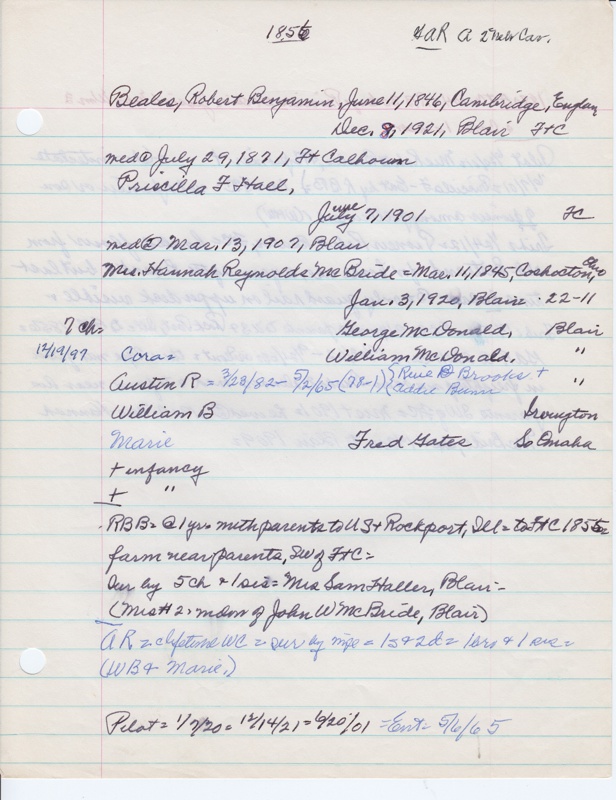 1856 GAR A 2nd Neb Cav.
Beales, Robert Benjamin, June 11, 1846, Cambridge, Englan
Dec. 8, 1921, Blair FtC
med① July 29, 1871, Ft Calhoun
Priscilla F Hall,
June 7, 1901 FC
med② Mar. 13, 1907, Blair
Mrs. Hannah Reynolds McBride = Mar. 11, 1845, Coshocton, Ohio
Jan. 3, 1920, Blair - 22-11
7 ch= George McDonald, Blair
12/19/97 Cora = William McDonald, "
Austin R = 3/28/82 - 5/2/65 (78-1) {Rene B Brooks + Addie Bunn "
William B Irvington
Marie Fred Gates So Omaha
+ infancy
+ "
RBB = @ 1 yr. with parents to US + Rockport, Ill = to FtC 1856
farm near parents, SW of FtC =
Sur by 5 ch + 1 sis = Mrs Sam Haller, Blair -
(Mrs # 2 = mom of John W McBride, Blair)
AR = lifetime WC = sur by wife = 1s + 2d = 1 bro + 1 sis =
(WB + Marie.)
Pilot = 1/7/20 = 12/14/21 = 6/20/01 = Ent = 5/6/65